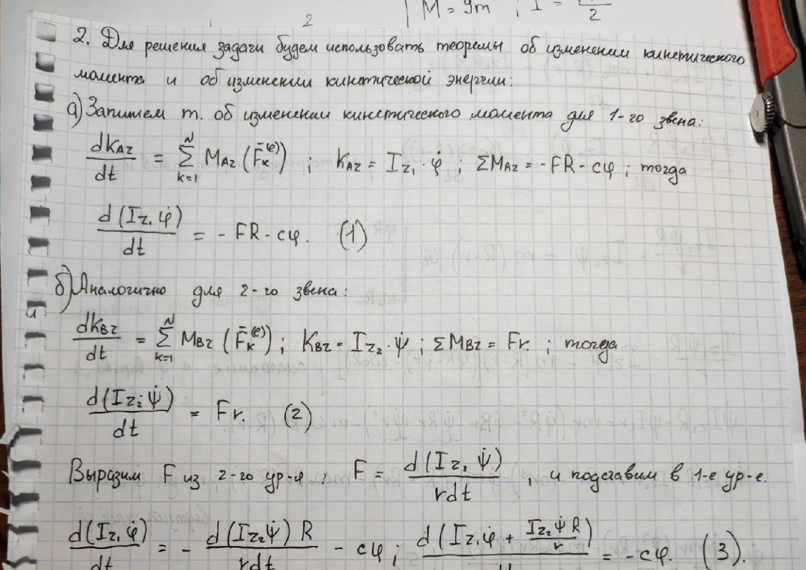 M = 9m ; I =
2
2
2. Для решения задачи будем использовать теоремы об изменении кинетического
момента и об изменении кинетической энергии:
а) Запишем т. об изменении кинетического момента для 1-го звена:
dK_Az/dt = Σ_{k=1}^{N} M_Az (F̄_k^(e)) ; K_Az = I_z₁ · φ̇ ; ΣM_Az = -FR - cφ ; тогда
d(I_z₁ φ̇)/dt = - FR - cφ. (1)
б) Аналогично для 2-го звена:
dK_Bz/dt = Σ_{k=1}^{N} M_Bz (F̄_k^(e)) ; K_Bz = I_z₂ · ψ̇ ; ΣM_Bz = Fr. ; тогда
d(I_z₂ ψ̇)/dt = Fr. (2)
Выразим F из 2-го ур-я ; F = d(I_z₂ ψ̇)/rdt , и подставим в 1-е ур-е.
d(I_z₁ φ̇)/dt = - d(I_z₂ ψ̇) R/rdt - cφ ; d(I_z₁ φ̇ + I_z₂ ψ̇ R/r) = -cφ. (3).